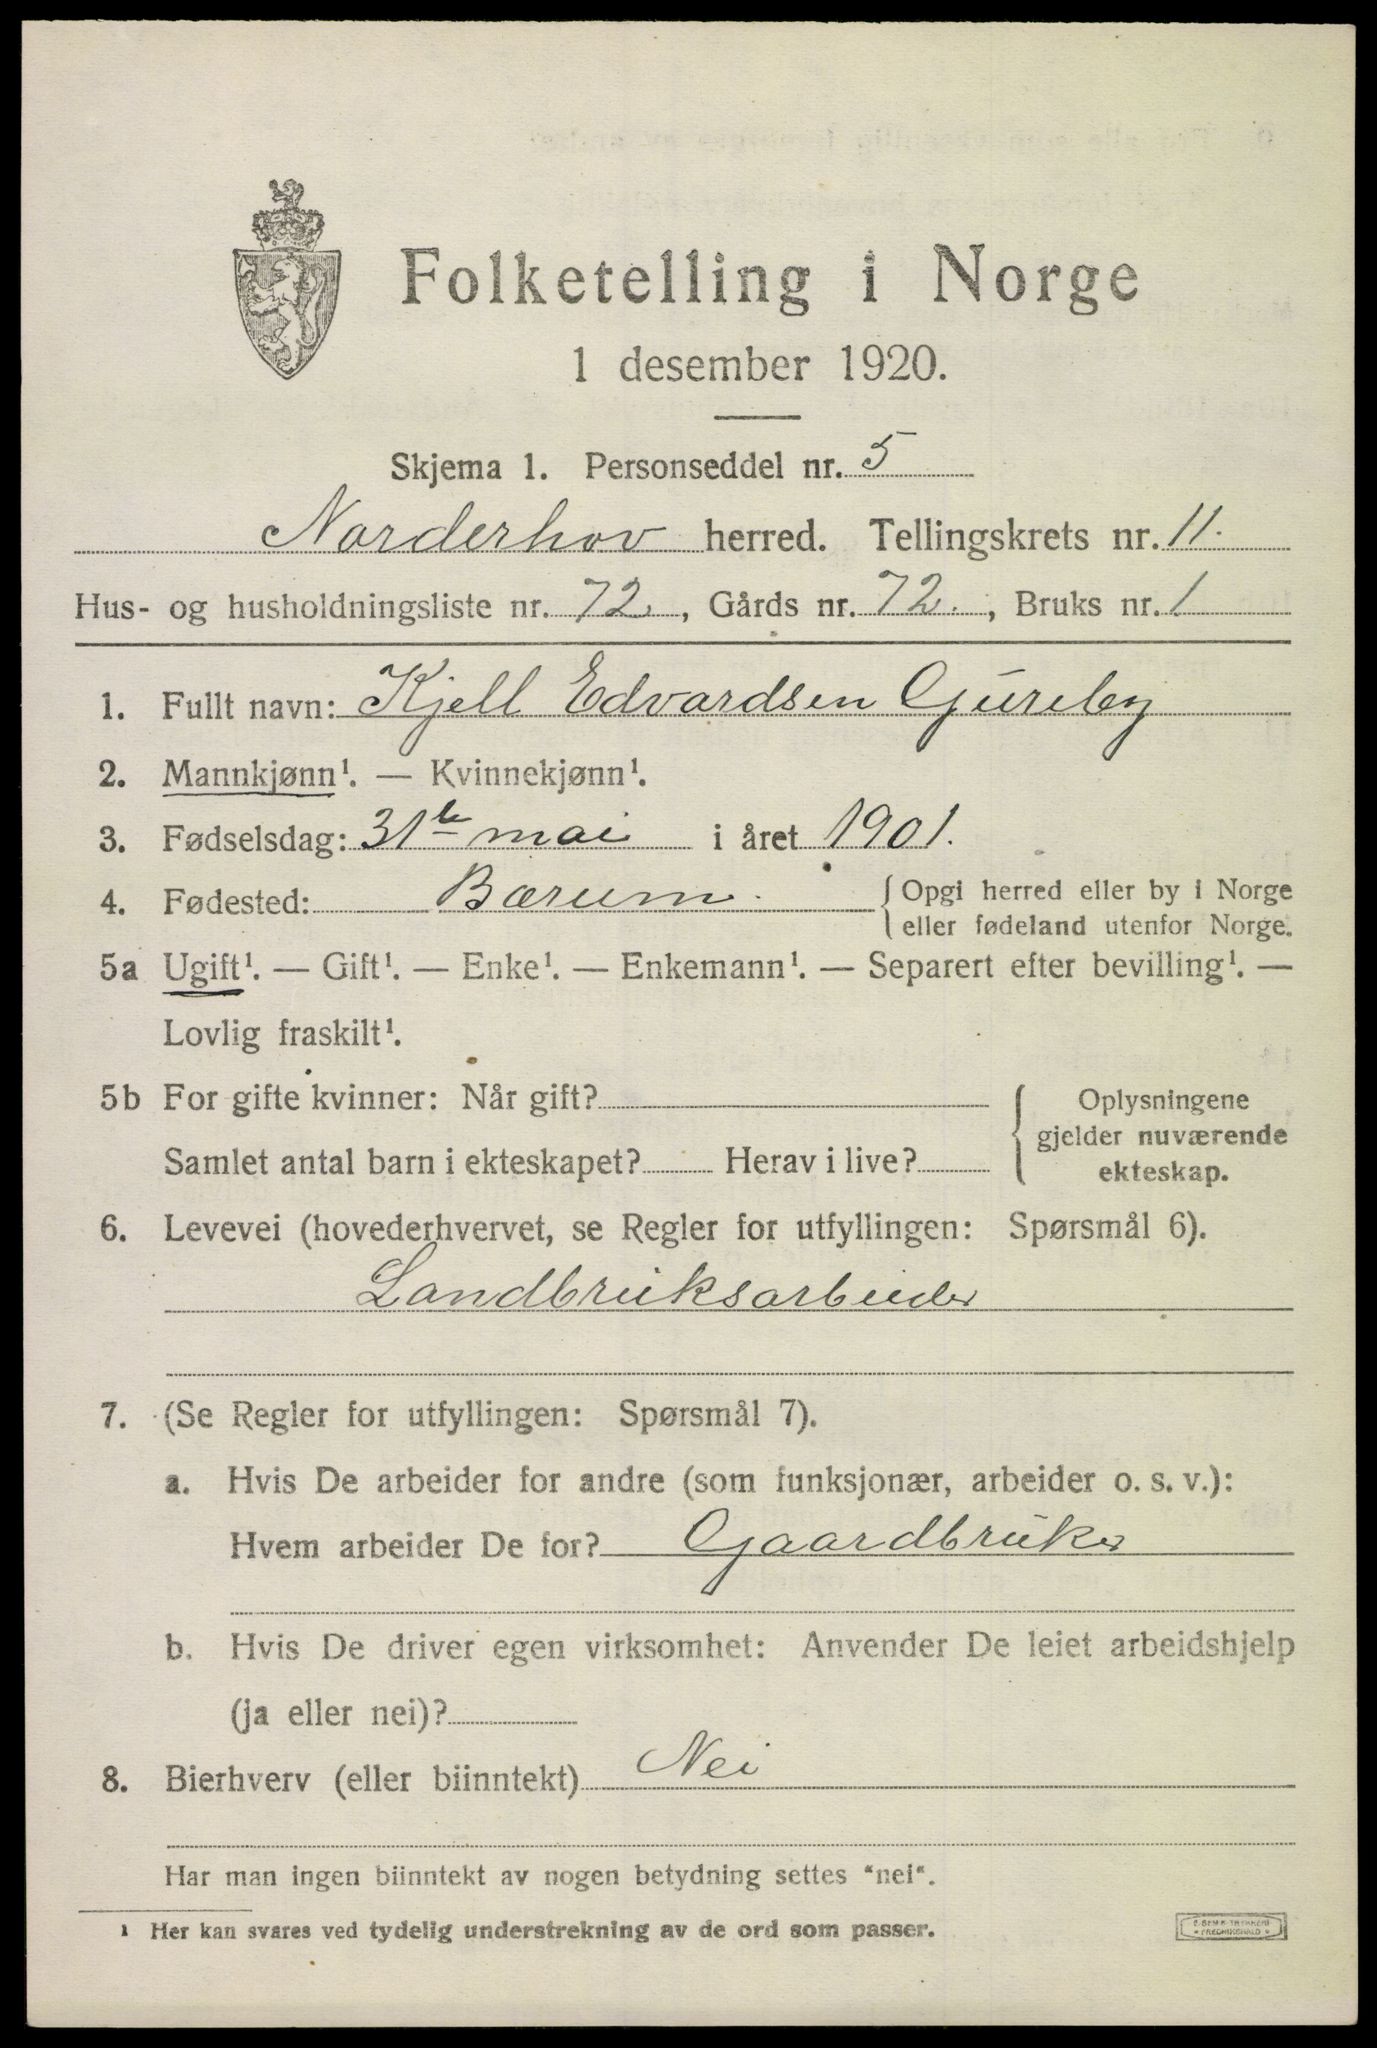 Folketelling i Norge
1 desember 1920.
Skjema 1. Personseddel nr. 5
Norderhov herred. Tellingskrets nr. 11.
Hus- og husholdningsliste nr. 72., Gårds nr. 72., Bruks nr. 1
1. Fullt navn: Kjell Edvardsen Gureby
2. Mannkjønn¹. — Kvinnekjønn¹.
3. Fødselsdag: 31te mai i året 1901.
4. Fødested: Bærum. { Opgi herred eller by i Norge
eller fødeland utenfor Norge.
5a Ugift¹. — Gift¹. — Enke¹. — Enkemann¹. — Separert efter bevilling¹. —
Lovlig fraskilt¹.
5b For gifte kvinner: Når gift?
Samlet antal barn i ekteskapet? Herav i live?
{ Oplysningene
gjelder nuværende
ekteskap.
6. Levevei (hovederhvervet, se Regler for utfyllingen: Spørsmål 6).
Landbruksarbeider
7. (Se Regler for utfyllingen: Spørsmål 7).
a. Hvis De arbeider for andre (som funksjonær, arbeider o. s. v.):
Hvem arbeider De for? Gaardbruker
b. Hvis De driver egen virksomhet: Anvender De leiet arbeidshjelp
(ja eller nei)?
8. Bierhverv (eller biinntekt) Nei
Har man ingen biinntekt av nogen betydning settes "nei".
¹ Her kan svares ved tydelig understrekning av de ord som passer.